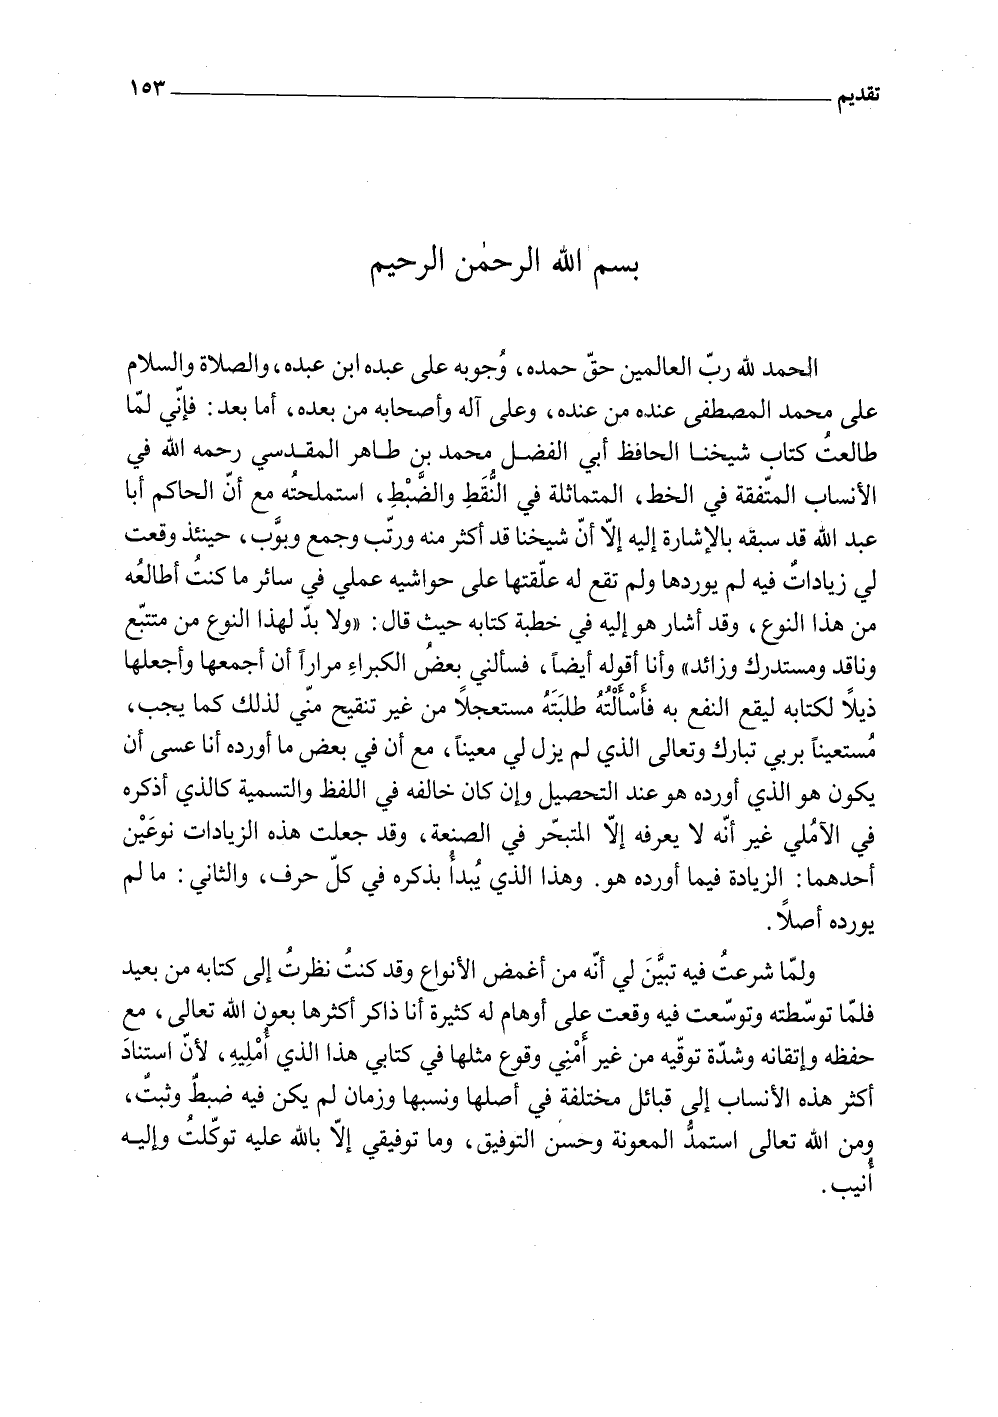 تقديم ١٥٣
بسم الله الرحمٰن الرحيم
الحمد لله ربّ العالمين حقّ حمده، وُجوبه على عبده ابن عبده، والصلاة والسلام
على محمد المصطفى عنده من عنده، وعلى آله وأصحابه من بعده، أما بعد: فإنّي لمّا
طالعتُ كتاب شيخنا الحافظ أبي الفضل محمد بن طاهر المقدسي رحمه الله في
الأنساب المتّفقة في الخط، المتماثلة في النُّقَطِ والضَّبْطِ، استملحتُه مع أنّ الحاكم أبا
عبد الله قد سبقه بالإشارة إليه إلاّ أنّ شيخنا قد أكثر منه ورتّب وجمع وبوَّب، حينئذ وقعت
لي زياداتٌ فيه لم يوردها ولم تقع له علّقتها على حواشيه عملي في سائر ما كنتُ أطالعُه
من هذا النوع، وقد أشار هو إليه في خطبة كتابه حيث قال: «ولا بدّ لهذا النوع من متتبّع
وناقد ومستدرك وزائد» وأنا أقوله أيضاً، فسألني بعضُ الكبراءِ مراراً أن أجمعها وأجعلها
ذيلاً لكتابه ليقع النفع به فأَسْأَلْتُهُ طلبَتَهُ مستعجلاً من غير تنقيح منّي لذلك كما يجب،
مُستعيناً بربي تبارك وتعالى الذي لم يزل لي معيناً، مع أن في بعض ما أورده أنا عسى أن
يكون هو الذي أورده هو عند التحصيل وإن كان خالفه في اللفظ والتسمية كالذي أذكره
في الآمُلي غير أنّه لا يعرفه إلاّ المتبحّر في الصنعة، وقد جعلت هذه الزيادات نوعَيْن
أحدهما: الزيادة فيما أورده هو. وهذا الذي يُبدأُ بذكره في كلّ حرف، والثاني: ما لم
يورده أصلاً.
ولمّا شرعتُ فيه تبيَّنَ لي أنّه من أغمض الأنواع وقد كنتُ نظرتُ إلى كتابه من بعيد
فلمّا توسّطته وتوسّعت فيه وقعت على أوهام له كثيرة أنا ذاكر أكثرها بعون الله تعالى، مع
حفظه وإتقانه وشدّة توقّيه من غير أَمْنِي وقوع مثلها في كتابي هذا الذي أُمْلِيهِ، لأنّ استنادَ
أكثر هذه الأنساب إلى قبائل مختلفة في أصلها ونسبها وزمان لم يكن فيه ضبطٌ وثبتٌ،
ومن الله تعالى استمدُّ المعونة وحسنَ التوفيق، وما توفيقي إلاّ بالله عليه توكّلتُ وإليه
أُنيب.